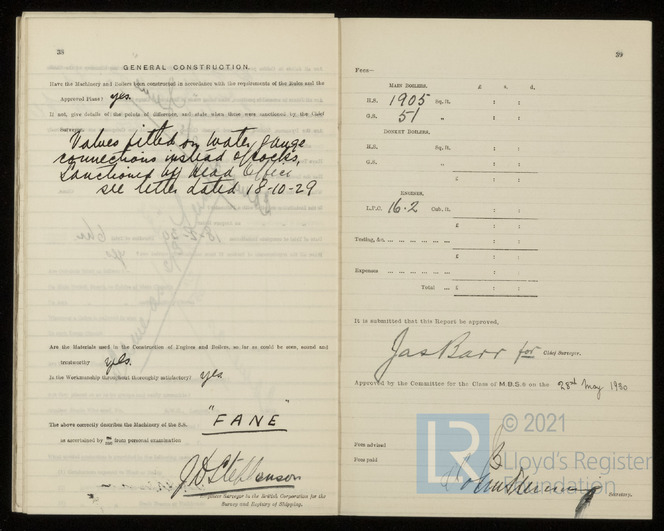 38
GENERAL CONSTRUCTION.
Have the Machinery and Boilers been constructed in accordance with the requirements of the Rules and the
Approved Plans? yes.
If not, give details of the points of difference, and state when these were sanctioned by the Chief
Surveyor.
Valves fitted on water gauge
connections instead of cocks,
Sanctioned by Head Office
see letter dated 18-10-29
Are the Materials used in the Construction of Engines and Boilers, so far as could be seen, sound and
trustworthy yes.
Is the Workmanship throughout thoroughly satisfactory? yes
The above correctly describes the Machinery of the S.S. "FANE"
as ascertained by from personal examination
J.D. Stephenson
Engineer Surveyor to the British Corporation for the
Survey and Registry of Shipping.
39
Fees—
MAIN BOILERS. £ s. d.
H.S. 1905 Sq. ft. : :
G.S. 51 „ : :
DONKEY BOILERS.
H.S. Sq. ft. : :
G.S. „ : :
£ : :
ENGINES.
L.P.C. 16.2 Cub. ft. : :
£ : :
Testing, &c. ... : :
£ : :
Expenses ... : :
Total ... £ : :
It is submitted that this Report be approved,
Jas Barr for Chief Surveyor.
Approved by the Committee for the Class of M.B.S.* on the 28th May 1930
Fees advised
Fees paid
Secretary.
LR
© 2021
Lloyd's Register
Foundation